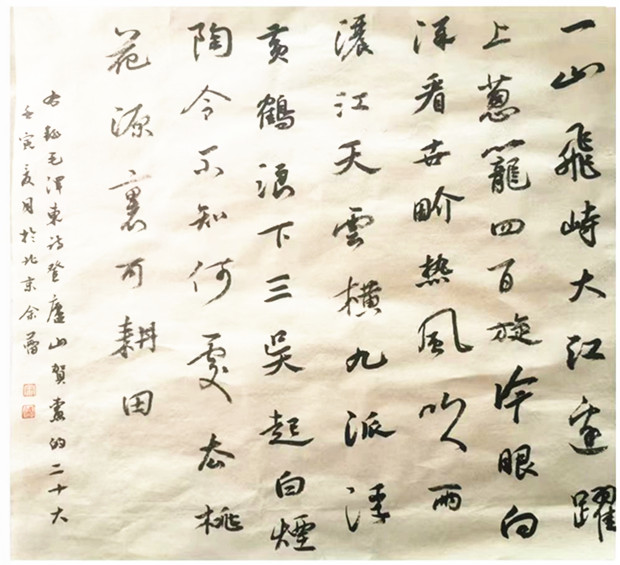 一山飛峙大江邊躍
上蔥籠四百旋冷眼向
洋看世畍热風吹雨
灑江天雲橫九派浮
黃鶴浪下三吳起白煙
陶令不知何處去桃
花源裏可耕田
右錄毛澤東詩登廬山賀黨的二十大
壬寅夏月於北京余